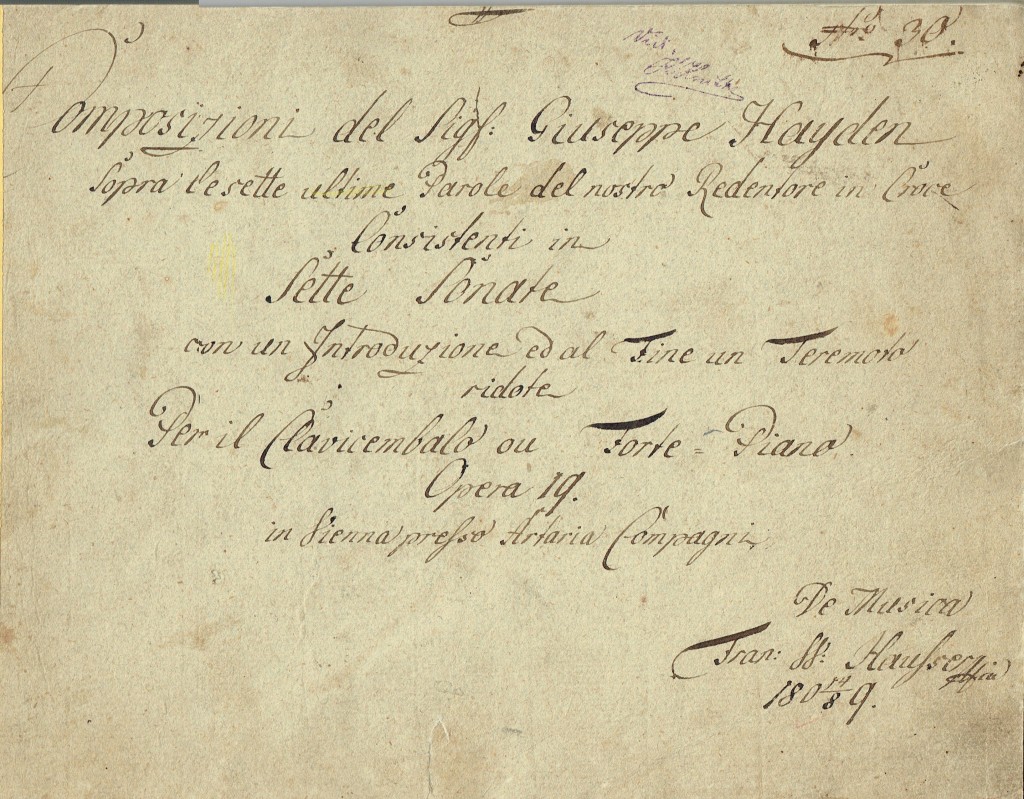 Nro 30.
Composizioni del Sigr: Giuseppe Hayden
Sopra le sette ultime Parole del nostro Redentore in Croce
Consistenti in
Sette Sonate
con un Introduzione ed al Fine un Teremoto
ridote
Per il Clavicembalo ou Forte=Piano.
Opera 19.
in Vienna presso Artaria Compagni
De Musica
Fran: Hausser
180 14/8 9.